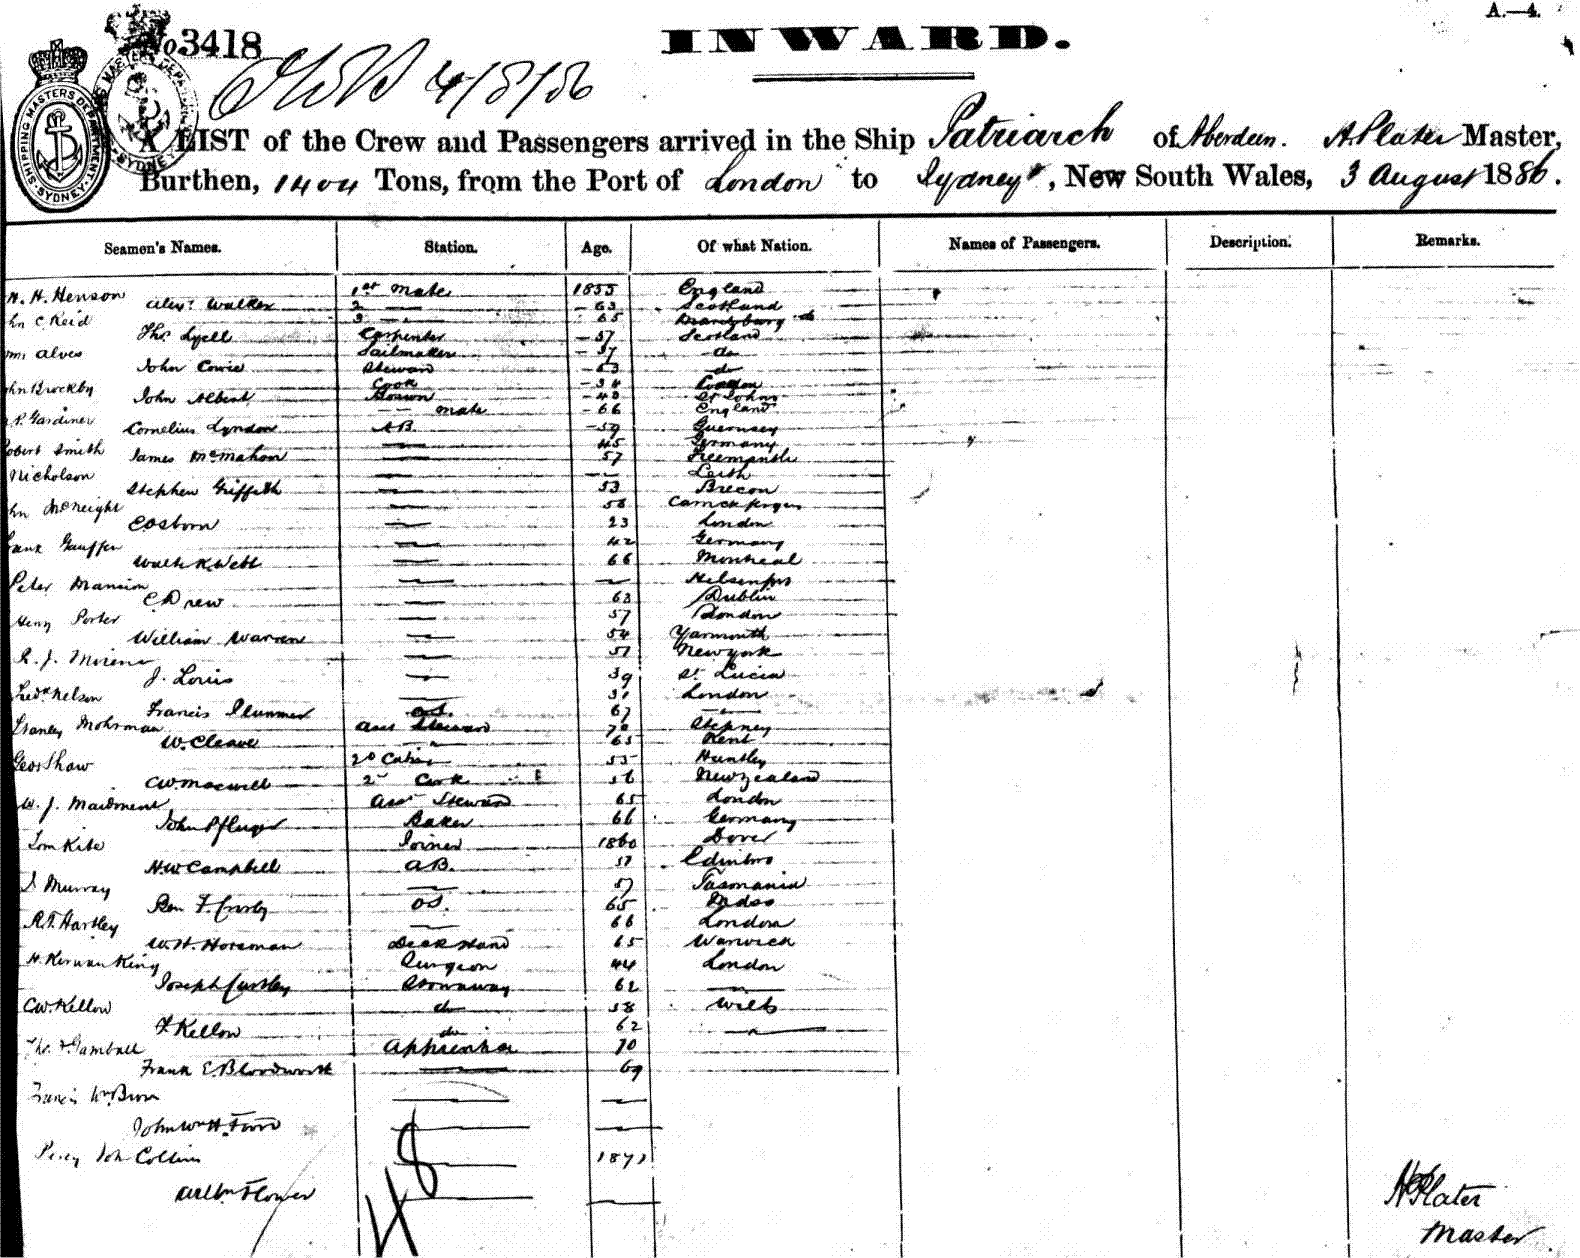 A.—4.
No. 3418
INWARD.
4/8/86
SHIPPING MASTERS DEPARTMENT SYDNEY
A LIST of the Crew and Passengers arrived in the Ship Patriarch of Aberdeen. A Plater Master,
Burthen, 1404 Tons, from the Port of London to Sydney, New South Wales, 3 August 1886.
Seamen's Names. Station. Age. Of what Nation. Names of Passengers. Description. Remarks.
H. Henson 1st Mate 1855 England
Alexr Walker 2 — 63 Scotland
C Reid 3 — 65
Thos Lyell Carpenter — 57 Scotland
Alves Sailmaker — 37 do
John Cowie Steward — 63 do
Brockby Cook — 34 London
John Albert Bosun — 42 St Johns
Gardiner — mate — 66 England
Cornelius Lyndon AB — 59 Guernsey
Robert Smith — 45 Germany
James McMahon — 57 Freemantle
Nicholson — — Leith
Stephen Griffith — 53 Brecon
McNeight — 58
C Osborn — 23 London
— 42 Germany
Walter K Webb — 66 Montreal
Peter Mansion — —
C Drew — 63 Dublin
Henry Porter — 57 London
William Warren — 54 Yarmouth
R. J. Moreno — 51 New York
J. Louis — 39 St Lucia
Fredk Nelson — 31 London
Francis Plummer O.S. 67 —
Stanley Mohrman Asst Steward 70 Stepney
W. Cleave — 65 Kent
Geo Shaw 2d 55 Huntley
CW. Maxwell 2 Cook 56 New Zealand
W. J. Maidment Asst Steward 65 London
John Pfluger Baker 66 Germany
Tom Kite Joiner 1860 Dover
H W Campbell AB. 51 Edinbro
Murray — 57 Tasmania
Ben F. O.S. 65
R.T. Hartley — 66 London
W. H. Horsman Deck Hand 65 Warwick
H. Kirwan King Surgeon 44 London
Joseph Stowaway 62 —
CW. Kellow do 58 Wilts
F Kellow do 62 —
Thos Gamball Apprentice 70
Frank E. Bloodworth — 69
Francis Wm — —
John — —
Percy John Collins — 1871
Flower — —
48
Plater
Master